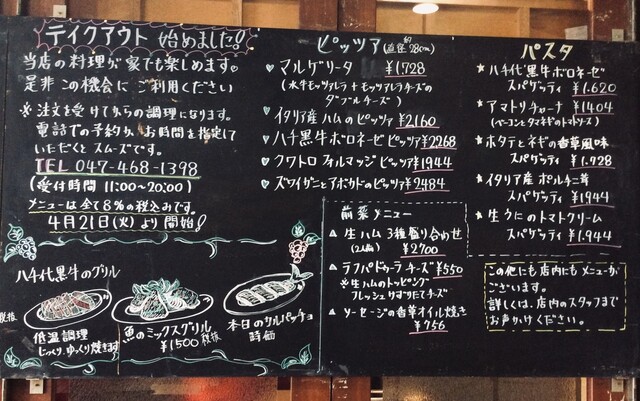 テイクアウト 始めました!
当店の料理が家でも楽しめます。
是非この機会にご利用ください
※注文を受けてからの調理になります。
電話での予約か、お時間を指定して
いただくとスムーズです。
TEL 047-468-1398
(受付時間 11:00〜20:00)
メニューは全て8%の税込みです。
4月21日(火)より開始!
ハチ代黒牛のグリル
税抜
低温調理
じっくり、ゆっくり焼きます
魚のミックスグリル
¥1500 税抜
本日のカルパッチョ
時価
ピッツァ(約直径28cm)
マルゲリータ ¥1728
(水牛モッツァレラ+モッツァレラチーズの
ダブルチーズ)
イタリア産ハムのピッツァ ¥2160
ハチ黒牛ボロネーゼピッツァ ¥2268
クワトロフォルマッジピッツァ ¥1944
ズワイガニとアボカドのピッツァ ¥2484
前菜メニュー
生ハム 3種盛り合わせ
(2人前) ¥2700
ラスパドゥーラチーズ ¥550
※生ハムのトッピング
フレッシュけずりたてチーズ
ソーセージの香草オイル焼き
¥756
パスタ
八千代黒牛ボロネーゼ
スパゲッティ ¥1.620
アマトリチャーナ ¥1404
(ベーコンとタマネギのトマトソース)
ホタテとネギの香草風味
スパゲッティ ¥1.728
イタリア産ポルチーニ茸
スパゲッティ ¥1944
生うにのトマトクリーム
スパゲッティ ¥1.944
この他にも店内にもメニューが
ございます。
詳しくは、店内のスタッフまで
お声かけください。